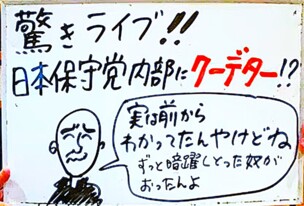 驚きライブ!!
日本保守党内部にクーデター!?
実は前から
わかってたんやけどね
ずっと暗躍しとった奴が
おったんよ